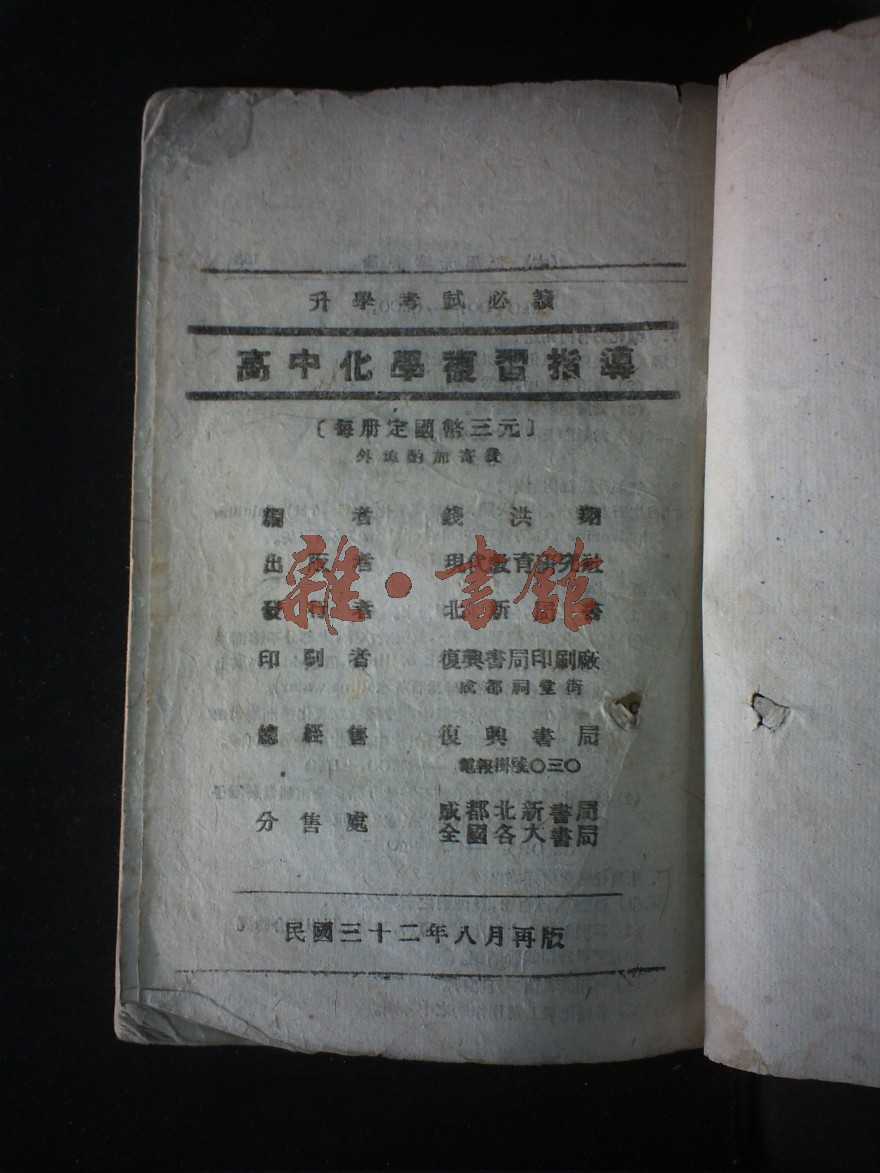 升學考試必讀
高中化學複習指導
〔每册定國幣三元〕
外埠酌加寄費
編者 錢洪翔
出版者 現代教育研究社
發行者 北新書局
印刷者 復興書局印刷廠
成都祠堂街
總經售 復興書局
電報掛號〇三〇
分售處 成都北新書局
全國各大書局
民國三十二年八月再版
雜·書館